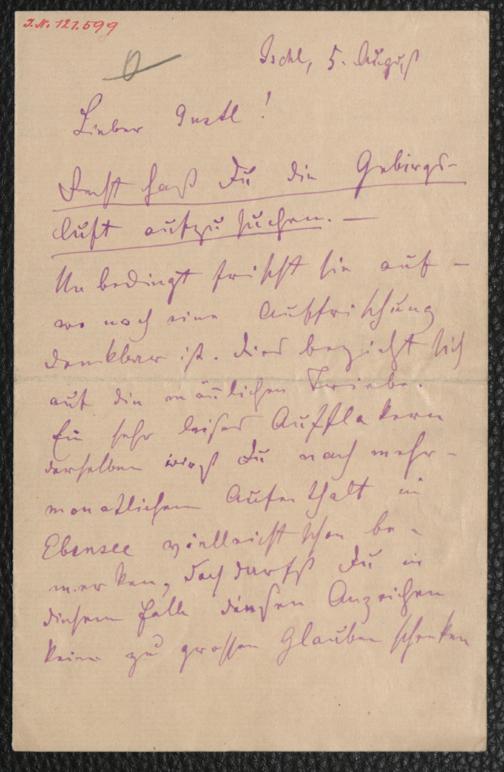 J.N. 121.599
Ischl, 5. August
Lieber Gustl!
Recht hast Du die Gebirgs-
luft aufzusuchen. —
Unbedingt frischt sie auf –
wo noch eine Auffrischung
denkbar ist. Dies bezieht sich
auf die männlichen Triebe.
Ein sehr leises Aufflakern
derselben wirst Du nach mehr-
monatlichem Aufenthalt in
Ebensee vielleicht schon be-
merken, doch darfst Du in
diesem Falle diesen Anzeichen
keinen zu grossen Glauben schenken